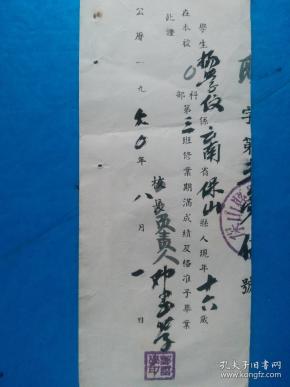 字第號
學生楊學係云南省保山縣人現年十六歲
在本校〇科部第三班修業期滿成績及格准予畢業
此證
校長負責人
公曆一九五〇年八月一日
孔夫子旧书网